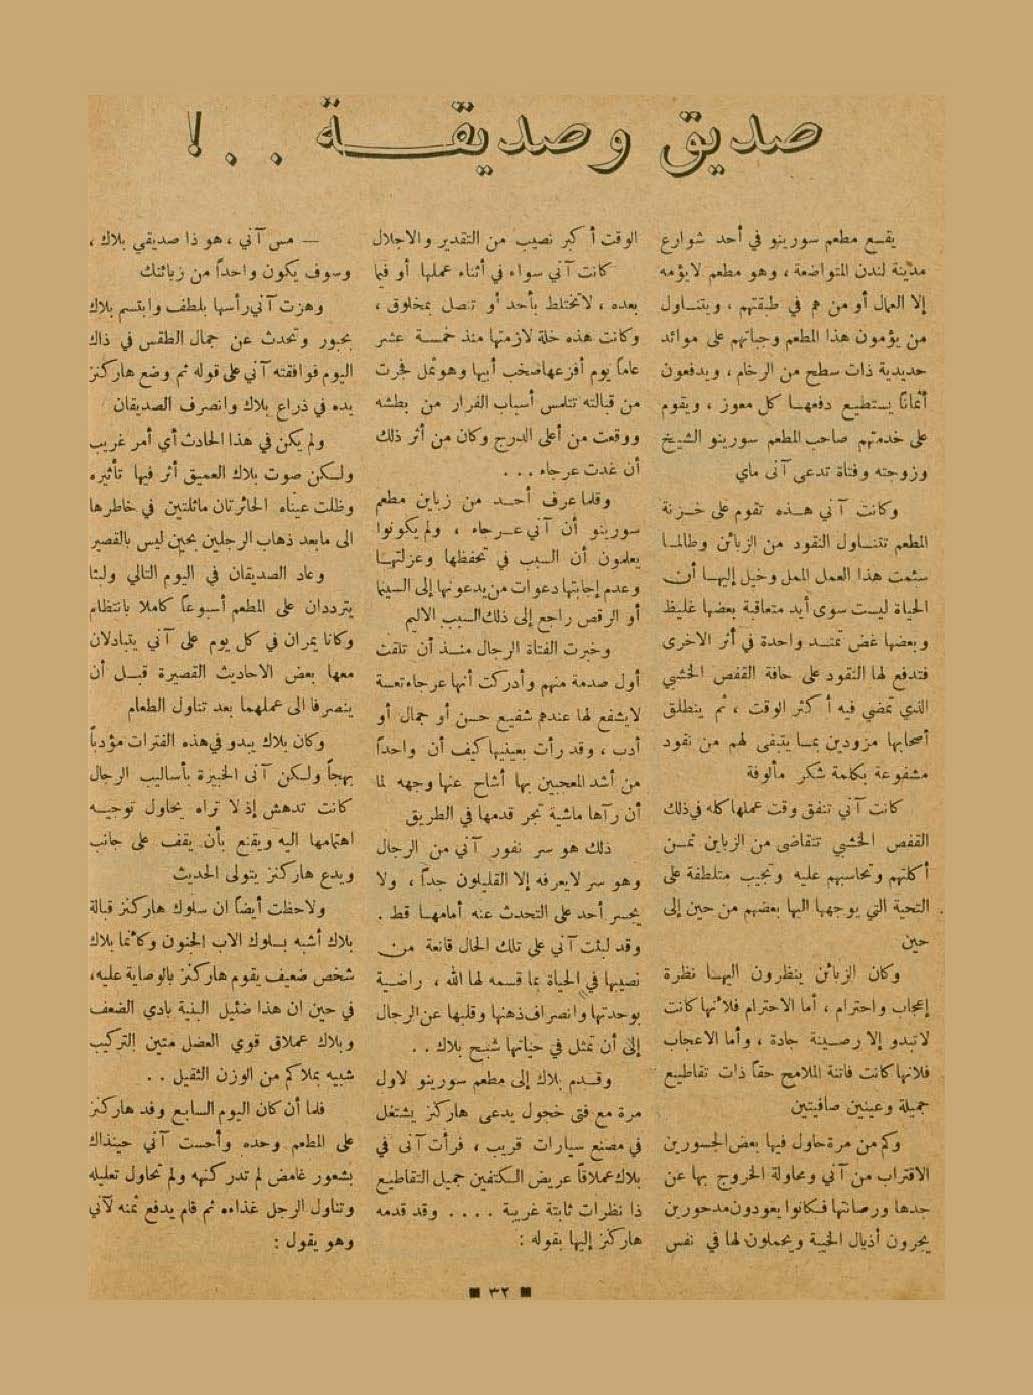 صديق وصديقة . . !
يقع مطعم سورينو في أحد شوارع
مدينة لندن المتواضعة ، وهو مطعم لا يؤمه
إلا العمال أو من هم في طبقتهم ، ويتناول
من يؤمون هذا المطعم وجباتهم على موائد
حديدية ذات سطح من الرخام ، ويدفعون
أثماناً يستطيع دفعها كل معوز ، ويقوم
على خدمتهم صاحب المطعم سورينو الشيخ
وزوجته وفتاة تدعى آنى ماي
وكانت آني هذه تقوم على خزنة
المطعم تتناول النقود من الزبائن وطالما
سئمت هذا العمل الممل وخيل إليها أن
الحياة ليست سوى أيد متعاقبة بعضها غليظ
وبعضها غض تمتد واحدة في أثر الاخرى
فتدفع لها النقود على حافة القفص الخشبي
الذي تمضي فيه أكثر الوقت ، ثم ينطلق
أصحابها مزودين بما يتبقى لهم من نقود
مشفوعة بكلمة شكر مألوفة
كانت آني تنفق وقت عملها كله في ذلك
القفص الخشبي تتقاضى من الزباين ثمن
أكلتهم وتحاسبهم عليه وتجيب متلطفة على
التحية التي يوجهها اليها بعضهم من حين إلى
حين
وكان الزبائن ينظرون اليها نظرة
إعجاب واحترام ، أما الاحترام فلأنها كانت
لا تبدو إلا رصينة جادة ، وأما الاعجاب
فلانها كانت فاتنة الملامح حقاً ذات تقاطيع
جميلة وعينين صافيتين
وكم من مرة حاول فيها بعض الجسورين
الاقتراب من آني ومحاولة الخروج بها عن
جدها ورصانتها فكانوا يعودون مدحورين
يجرون أذيال الخيبة ويحملون لها في نفس
الوقت أكبر نصيب من التقدير والاجلال
كانت آني سواء في أثناء عملها أو فيما
بعده ، لا تختلط بأحد أو تتصل بمخلوق ،
وكانت هذه خلة لازمتها منذ خمسة عشر
عاماً يوم أفزعها صخب أبيها وهو ثمل فجرت
من قبالته تتلمس أسباب الفرار من بطشه
ووقعت من أعلى الدرج وكان من أثر ذلك
أن غدت عرجاء . . .
وقلما عرف أحد من زباين مطعم
سورينو أن آني عرجاء ، ولم يكونوا
يعلمون أن السبب في تحفظها وعزلتها
وعدم إجابتها دعوات من يدعونها إلى السينما
أو الرقص راجع إلى ذلك السبب الاليم
وخبرت الفتاة الرجال منذ أن تلقت
أول صدمة منهم وأدركت أنها عرجاء تعسة
لا يشفع لها عندهم شفيع حسن أو جمال أو
أدب ، وقد رأت بعينيها كيف أن واحداً
من أشد المعجبين بها أشاح عنها وجهه لما
أن رآها ماشية تجر قدمها في الطريق
ذلك هو سر نفور آني من الرجال
وهو سر لا يعرفه إلا القليلون جداً ، ولا
يجسر أحد على التحدث عنه أمامها قط .
وقد لبثت آني على تلك الحال قانعة من
نصيبها في الحياة بما قسمه لها الله ، راضية
بوحدتها وانصراف ذهنها وقلبها عن الرجال
إلى أن تمثل في حياتها شبح بلاك . .
وقدم بلاك إلى مطعم سورينو لاول
مرة مع فتى خجول يدعى هاركنز يشتغل
في مصنع سيارات قريب ، فرأت آنى في
بلاك عملاقاً عريض الكتفين جميل التقاطيع
ذا نظرات ثابتة غريبة . . . . وقد قدمه
هاركنز إليها بقوله :
— مس آني ، هو ذا صديقي بلاك ،
وسوف يكون واحداً من زبائنك
وهزت آني رأسها بلطف وابتسم بلاك
بحبور وتحدث عن جمال الطقس في ذاك
اليوم فوافقته آني على قوله ثم وضع هاركنز
يده في ذراع بلاك وانصرف الصديقان
ولم يكن في هذا الحادث أي أمر غريب
ولكن صوت بلاك العميق أثر فيها تأثيره
وظلت عيناه الحائرتان ماثلتين في خاطرها
الى ما بعد ذهاب الرجلين بحين ليس بالقصير
وعاد الصديقان في اليوم التالي ولبثا
يترددان على المطعم أسبوعاً كاملا بانتظام
وكانا يمران في كل يوم على آني يتبادلان
معها بعض الاحاديث القصيرة قبل أن
ينصرفا الى عملهما بعد تناول الطعام
وكان بلاك يبدو في هذه الفترات مؤدباً
بهجاً ولكن آنى الخبيرة بأساليب الرجال
كانت تدهش إذ لا تراه يحاول توجيه
اهتمامها اليه ويقنع بأن يقف على جانب
ويدع هاركنز يتولى الحديث
ولاحظت أيضاً ان سلوك هاركنز قبالة
بلاك أشبه بسلوك الاب الحنون وكأنما بلاك
شخص ضعيف يقوم هاركنز بالوصاية عليه،
في حين ان هذا ضئيل البنية بادي الضعف
وبلاك عملاق قوي العضل متين التركيب
شبيه بملاكم من الوزن الثقيل . .
فلما أن كان اليوم السابع وفد هاركنز
على المطعم وحده وأحست آني حينذاك
بشعور غامض لم تدر كنهه ولم تحاول تعليله
وتناول الرجل غذاءه ثم قام يدفع ثمنه لآني
وهو يقول :
■ ٣٢ ■